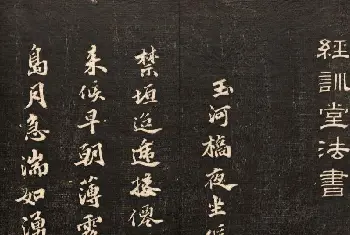 經訓堂法書
玉河橋夜坐
禁垣迢遞接僊
来候早朝薄
島月急湍如湧